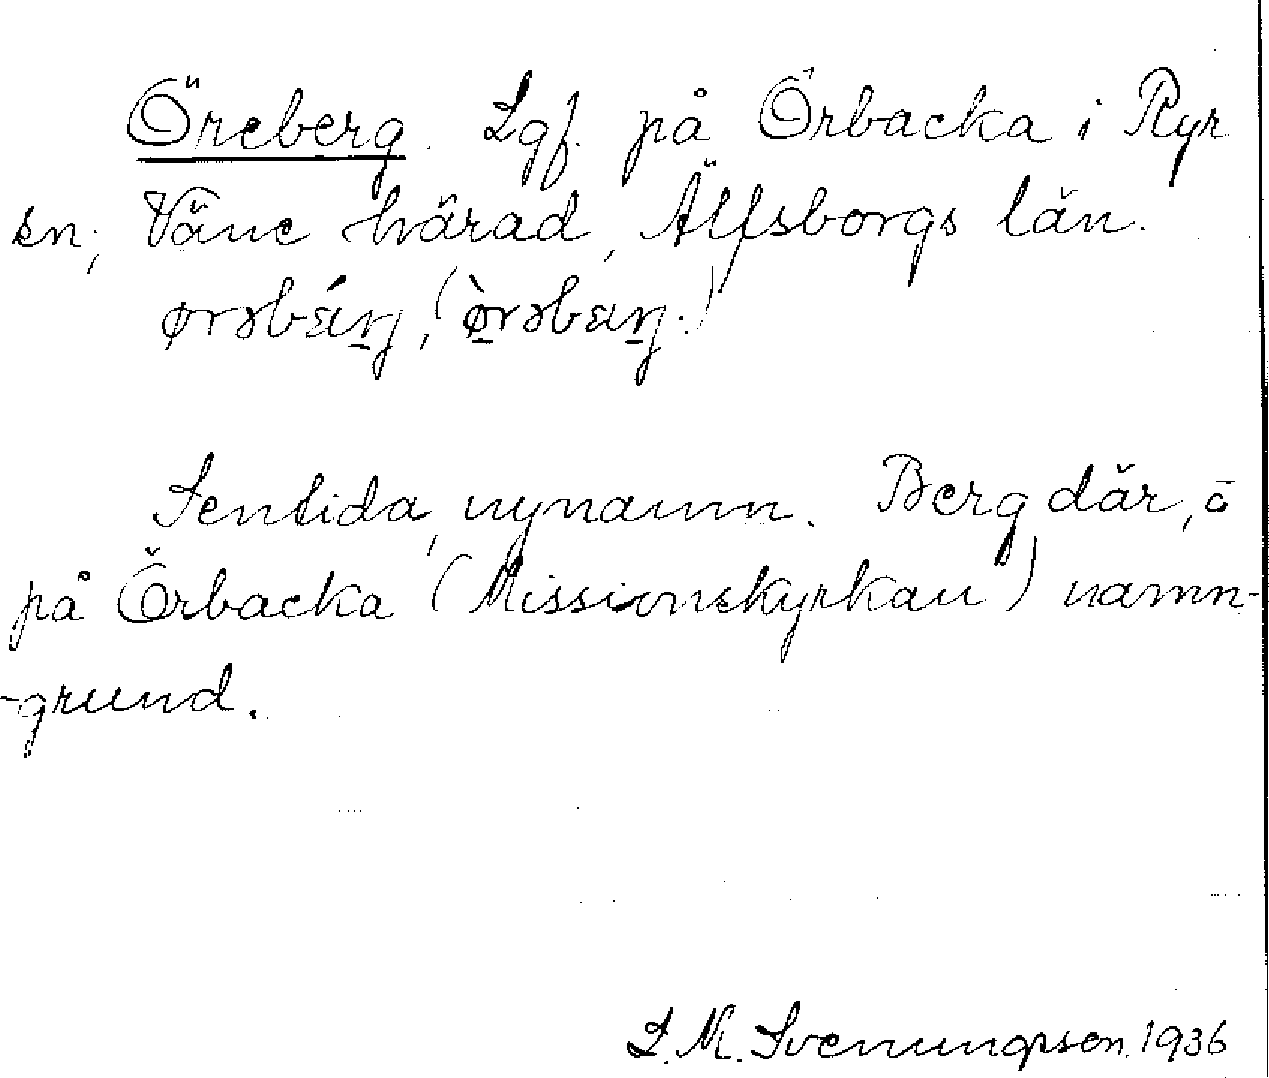 Öreberg. Lgf. på Örbacka i Ryr
sn; Väne härad, Älfsborgs län.
ørəbǽrŋ, (ø̀rəbærŋ.)
Sentida, nynamn. Berg där, ö
på Örbacka (Missionskyrkan) namn-
-grund.
L. M. Svenungsson. 1936